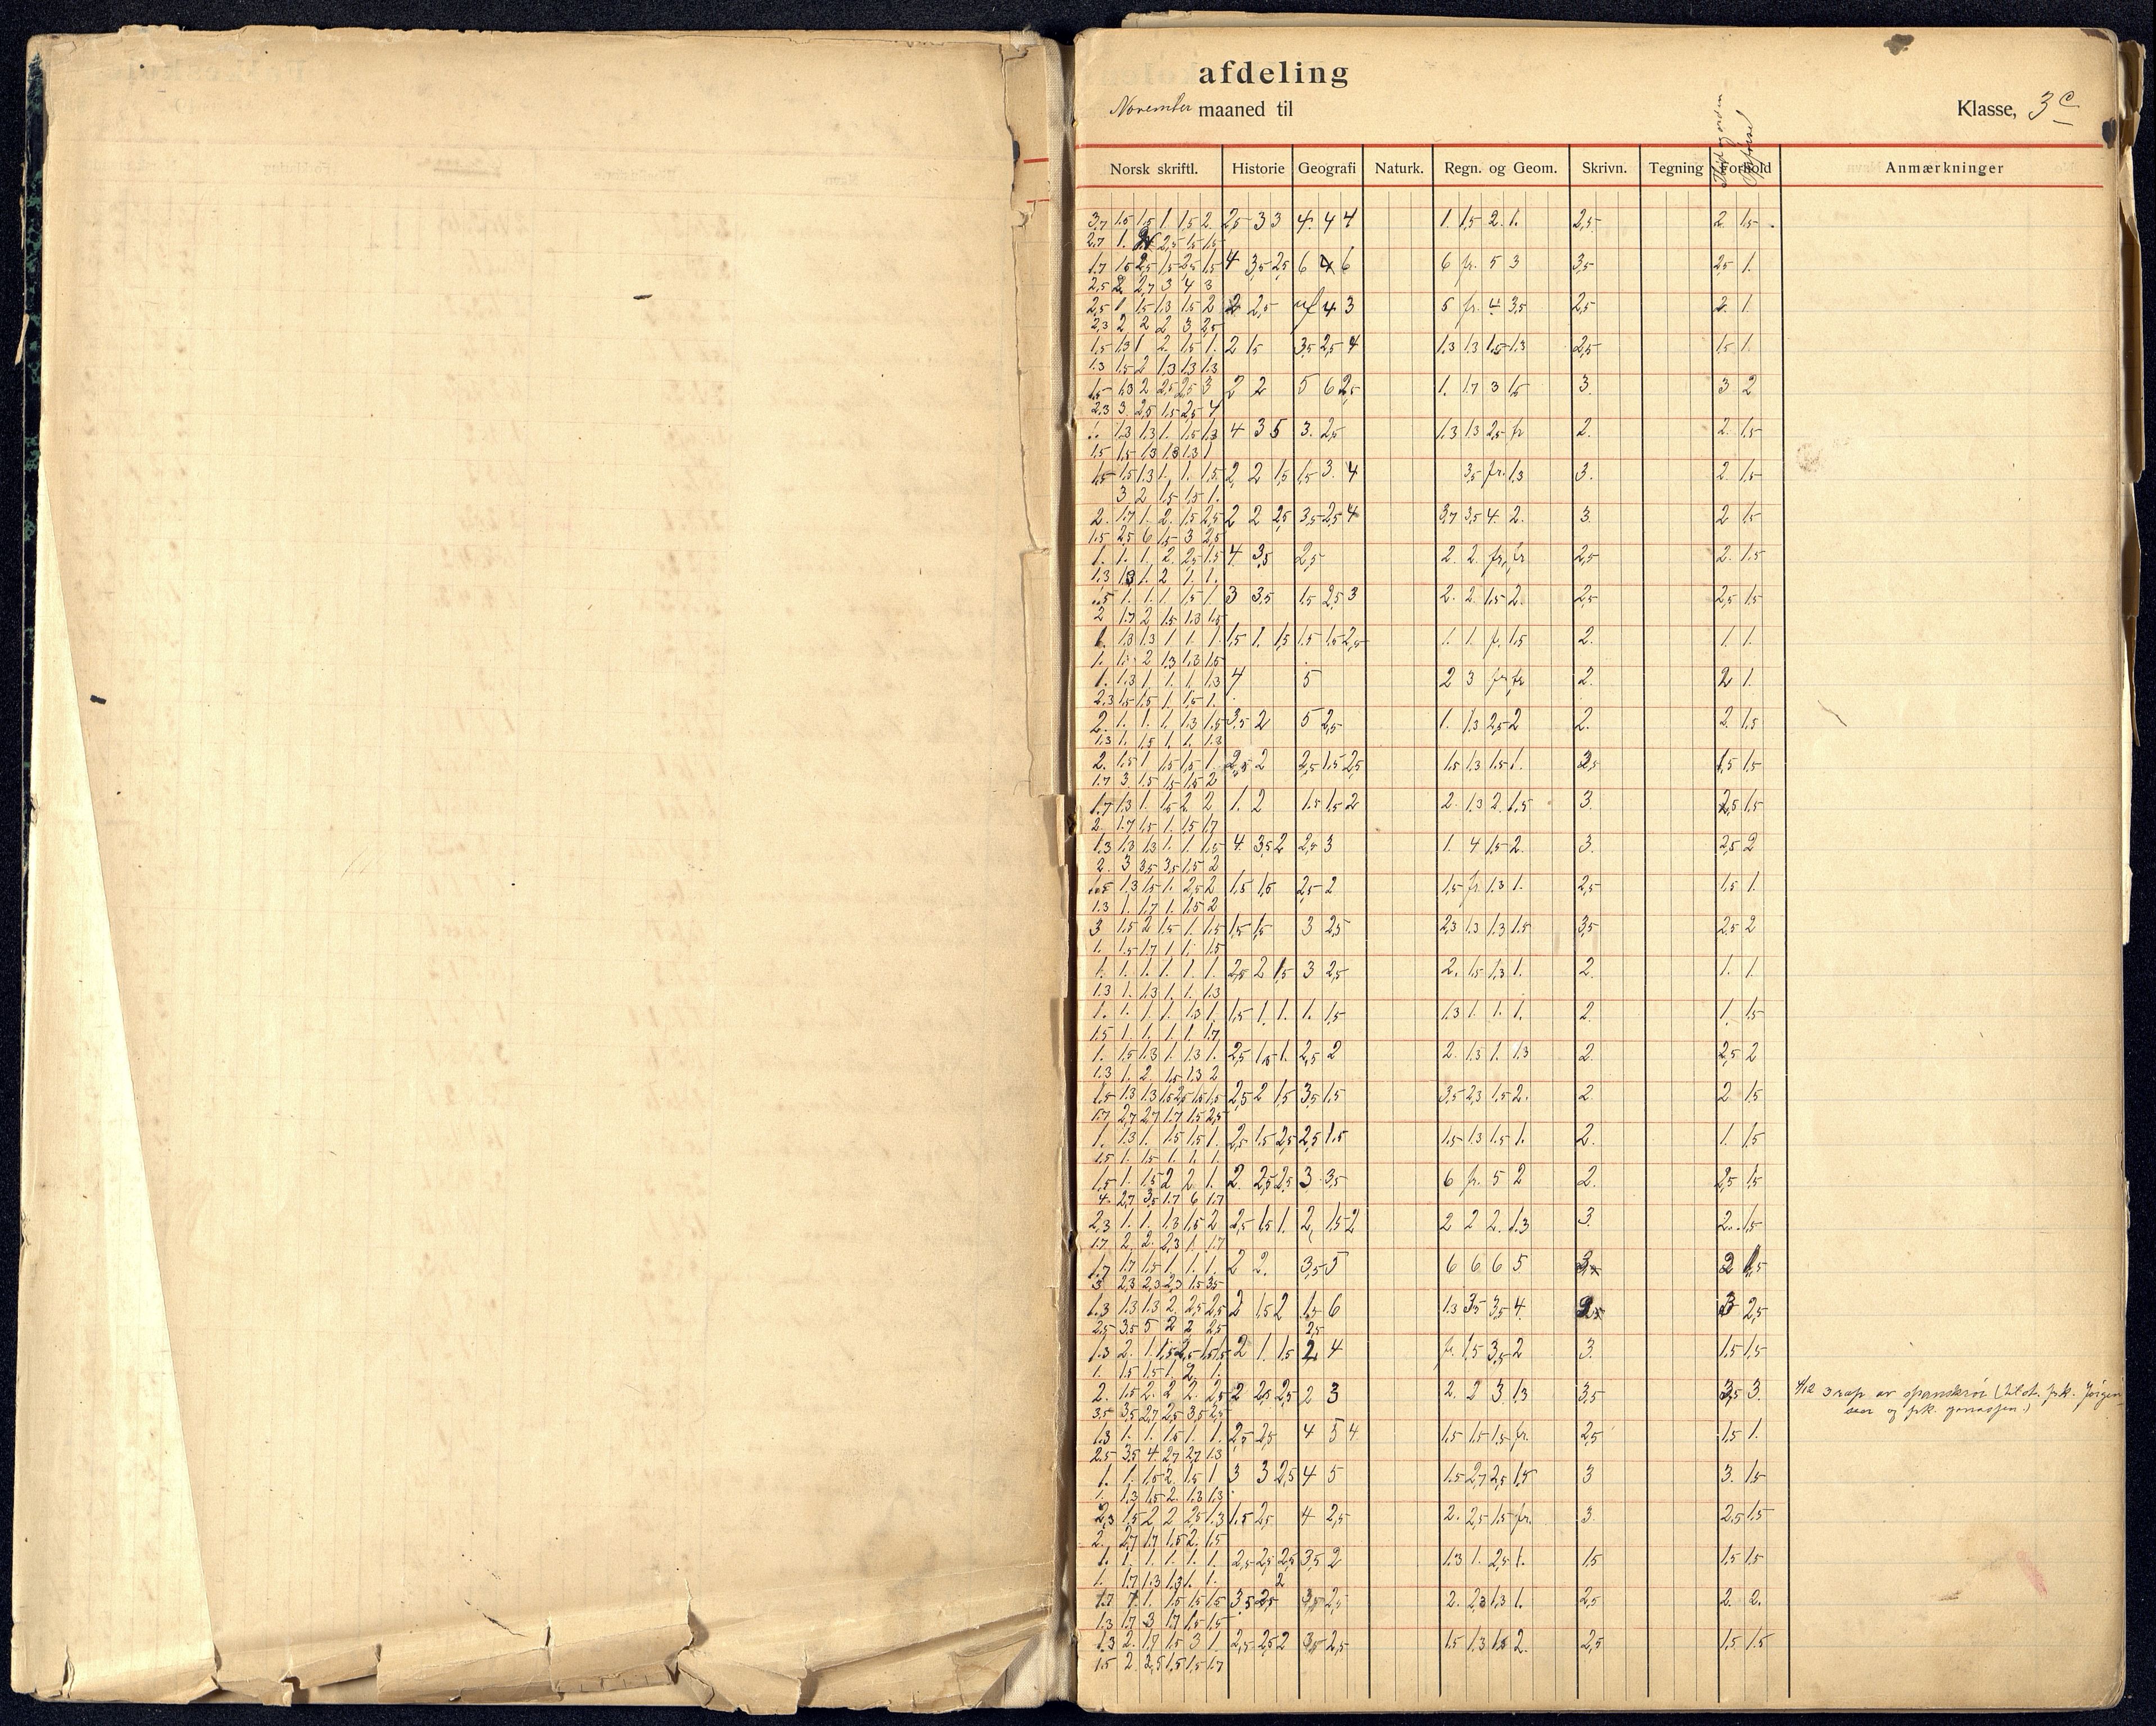 afdeling
November maaned til
Klasse, 3 c
Norsk skriftl. Historie Geografi Naturk. Regn. og Geom. Skrivn. Tegning Forhold Anmærkninger
3,7 1,5 1,5 1 1,5 2 2,5 3 3 4 4 4 1. 1,5 2. 1. 2,5 2 1,5
1,7 1,5 2,5 1,5 2,5 1,5 4 3,5 2,5 6 4 6 6 fr. 5 3 3,5 2,5 1.
2,5 2 2,7 3 4 3
2,5 1 1,5 1,3 1,5 2 2 2,5 uf 4 3 5 fr. 4 3,5 2,5 2. 1
2,3 2 2 2 3 2,5
1,5 1,3 1 2. 1,5 1. 2 1,5 3,5 2,5 4 1,3 1,3 1,5 1,3 2,5 1,5 1.
1.3 1,5 2 1,3 1,3 1,3
1,5 1,3 2 2,5 2,5 3 2 2 5 6 2,5 1. 1.7 3 1,5 3. 3 2
2,3 3. 2,5 1,5 2,5 4
1. 1.3 1.3 1. 1.5 1.3 4 3 5 3. 2,5 1.3 1.3 2,5 fr 2. 2. 1,5
1,5 1,5 1,3 1,3 1,3 1
1,5 1,5 1.3 1. 1. 1,5 2 2 1,5 1,5 3. 4 3,5 fr. 1,3 3. 2 1,5
3 2 1,5 1,5 1.
2. 1.7 1. 2. 1,5 2,5 2 2 2,5 3,5 2,5 4 3,7 3,5 4. 2. 3. 2 1,5
1.5 2,5 6 1,5 3 2,5
1. 1. 1. 2. 2,5 1,5 4. 3,5 2,5 2. 2. fr. fr 2,5 2. 1.5
1.3 1.3 1. 2 1. 1.
1,5 1. 1. 1 1,5 1 3 3,5 1,5 2,5 3 2. 2. 1.5 2. 2,5 2,5 1,5
2 1.7 2 1,5 1.3 1,5
1. 1,3 1,3 1 1. 1. 1,5 1. 1,5 1.5 1.5 2,5 1. 1. fr. 1.5 2. 1. 1.
1. 1. 2 1.3 1.3 1.5
1. 1.3 1 1. 1. 1.3 4 5 2 3 fr fr 2. 2 1.
2.3 1,5 1,5 1. 1,5 1.
2. 1. 1. 1. 1.3 1,5 3,5 2 5 2,5 1. 1.3 2,5 2 2. 2. 1,5
1.3 1. 1,5 1. 1. 1.3
2. 1.5 1 1.5 1,5 1. 2,5 2 2,5 1.5 2,5 1.5 1.3 1.5 1. 2,5 1,5 1,5
1.7 3 1.5 1,5 1,5 2
1.7 1.3 1. 1,5 2 2 1. 2 1.5 1.5 2 2. 1.3 2. 1,5 3. 2,5 1,5
2. 1.7 1,5 1. 1.5 1.7
1.3 1.3 1.3 1. 1. 1,5 4. 3,5 2 2,5 3 1. 4 1.5 2. 3. 2,5 2
2. 3 3,5 3,5 1,5 2
1.5 1.3 1.5 1. 2,5 2 1.5 1,5 2,5 2 1,5 fr. 1.3 1. 2,5 1.5 1.
1.3 1. 1.7 1. 1.5 2
3 1.5 2 1,5 1. 1,5 1,5 1,5 3 2,5 2,3 1.3 1.3 1.5 3,5 2,5 2
1. 1.5 1.7 1. 1. 1,5
1. 1. 1. 1. 1. 1. 2,5 2 1,5 3 2,5 2. 1.5 1.3 1. 2. 1. 1.
1.3 1. 1.3 1. 1. 1.3
1. 1. 1. 1. 1.3 1. 1.5 1. 1. 1. 1,5 1.3 1. 1. 1. 2. 1. 1,5
1.5 1. 1. 1. 1. 1.7
1. 1.5 1.3 1. 1.3 1. 2,5 1.5 1. 2,5 2 2. 1.3 1. 1.3 2. 2,5 2
1.3 1. 2. 1,5 1.3 2
1.5 1.3 1.3 1.5 2,5 1,5 2,5 2 1,5 3,5 1,5 3,5 2,3 1.5 2. 2. 2 1,5
1.7 2,7 2,7 1.7 1.5 2,5
1. 1.3 1. 1.5 1.5 1. 2,5 1.5 2,5 2,5 1.5 1.5 1.3 1.5 1. 2. 1. 1,5
1.5 1. 1.5 1. 1. 1.
1.5 1. 1.5 2 2. 1. 2. 2,5 2,5 3 3,5 6 fr. 5 2 2. 2,5 1,5
4. 2,7 3,5 1.7 6 1.7
2,3 1. 1. 1.3 1,5 2 2,5 1.5 1. 2 1,5 2 2 2 2. 1.3 3. 2. 1,5
1.7 2. 2. 2,3 1. 1.7
1.7 1.7 1.5 1. 1. 1. 2 2. 3,5 5 6 6 6 5 3 2 1,5
3 2,3 2,3 2,3 1.5 3,5
1.3 1.3 1.3 2. 2,5 2,5 2 1.5 2 1.5 6 1.3 3,5 3,5 4. 3 2,5
2,5 3,5 5 2 2 2,5 2,5
1.3 2. 1. 1.5 2,5 1,5 2 1. 1,5 2 4 fr. 1.5 3,5 2 3. 1.5 1.5
1. 1.5 1.5 1. 2 1.
2. 1.5 2. 2 2. 2,5 2 2,5 2,5 2 3 2. 2 3 1.3 3,5 3,5 3. 4/12 3 rap av spanskrør (
3,5 3,5 2,7 2,5 3,5 2,5 og frk.
1.3 1. 1. 1.5 1. 1. 2,5 2,5 4 5 4 1.5 1.5 1.5 fr. 2,5 1.5 1.
2.5 3,5 4 2,7 2,7 1.3
1. 1. 1.5 2. 1.5 1 3 3 2,5 4 5 1.5 2,7 2,5 1.5 3 3. 1.5
1. 1.3 1.5 2. 1.3 1.3
2,3 1.5 2 2 2,5 1.3 1.5 2,5 4 2,5 2. 2,5 1.5 fr. 3. 2,5 1.5
2. 2,7 1.7 1.5 2. 1.5
1. 1. 1. 1. 1. 1. 2,5 2,5 2,5 3,5 2 1.3 1. 2,5 1. 1.5 1.5 1.5
1. 1.7 1.3 1.3 1. 1. 2
1.7 1. 1. 1.5 1.5 1.5 3,5 2,5 3,5 2,5 2. 2,3 1.3 1. 2,5 2. 2.
1.3 1.7 3 1.7 1.5 1.5
1.3 2. 1.7 1.5 3 1. 2,5 2,5 2 3,5 2,5 1.5 1.3 1.5 2. 2,5 1.5 1.5
1.5 2. 2,5 1.5 1.5 1.7